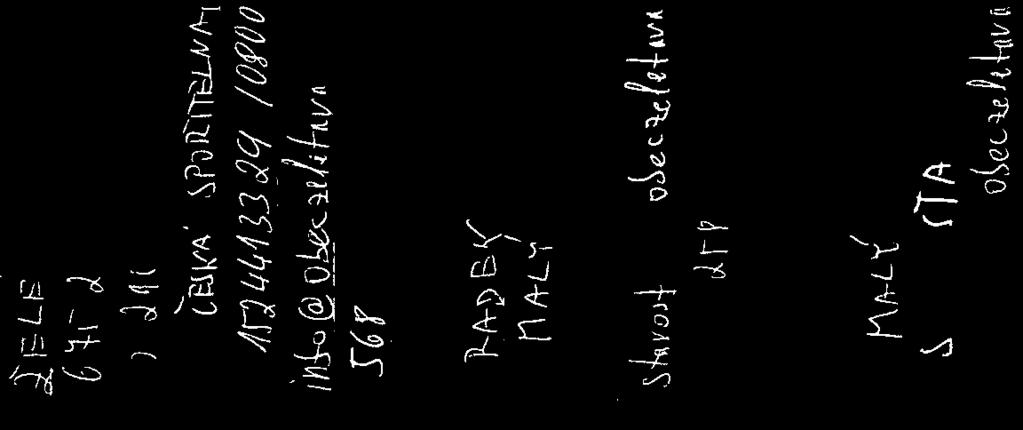 ŽELE
ČESKÁ SPOŘITELNA,
1524413329 /0800
info@obeczeletava
568
RADEK
MALÝ
starost obeczeletava
MALÝ
S STA
obeczeletava